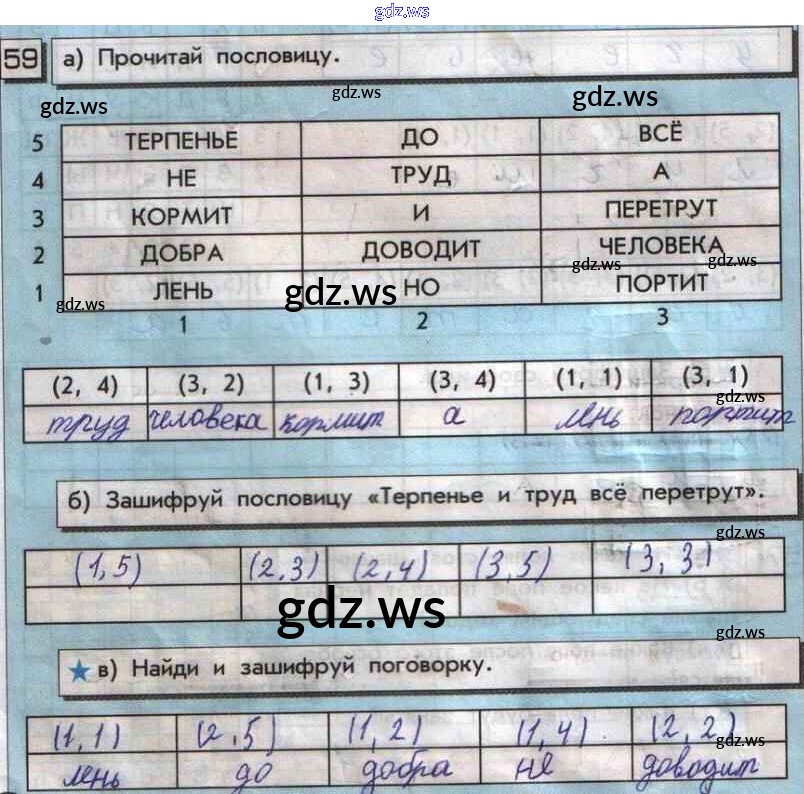 gdz.ws
59 а) Прочитай пословицу.
gdz.ws gdz.ws gdz.ws
5 ТЕРПЕНЬЕ ДО ВСЁ
4 НЕ ТРУД А
3 КОРМИТ И ПЕРЕТРУТ
2 ДОБРА ДОВОДИТ ЧЕЛОВЕКА
gdz.ws gdz.ws
1 ЛЕНЬ НО ПОРТИТ
gdz.ws gdz.ws
1 2 3
(2, 4) (3, 2) (1, 3) (3, 4) (1, 1) (3, 1)
gdz.ws
труд человека кормит а лень портит
б) Зашифруй пословицу «Терпенье и труд всё перетрут».
gdz.ws
(1,5) (2,3) (2,4) (3,5) (3,3)
gdz.ws
gdz.ws
в) Найди и зашифруй поговорку.
(1,1) (2,5) (1,2) (1,4) (2,2)
gdz.ws
лень до добра не доводит